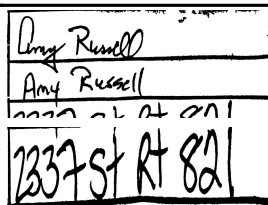 Amy Russell
Amy Russell
2337 St Rt 821